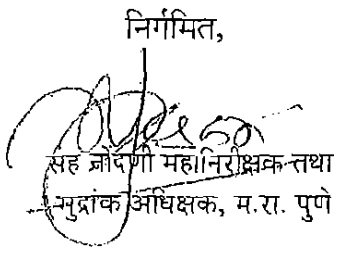 निर्गमित,
सह नोंदणी महानिरीक्षक तथा
मुद्रांक अधिक्षक, म.रा. पुणे